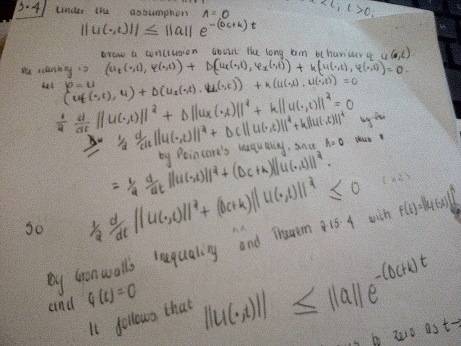 3.4) Under the assumption Λ=0
||u(·,t)|| ≤ ||a|| e^-(Dc+k)t
Draw a conclusion about the long term behaviour of u(·,t).
(u_t(·,t), φ(·,t)) + D(u_x(·,t), φ_x(·,t)) + k(u(·,t), φ(·,t)) = 0.
Let φ=u
(u_t(·,t), u) + D(u_x(·,t), u_x(·,t)) + k(u(·,t), u(·,t)) = 0
1/2 d/dt ||u(·,t)||² + D||u_x(·,t)||² + k||u(·,t)||² = 0
1/2 d/dt ||u(·,t)||² + Dc||u(·,t)||² + k||u(·,t)||²
by Poincare's Inequality, since Λ=0
= 1/2 d/dt ||u(·,t)||² + (Dc+k)||u(·,t)||².
So 1/2 d/dt ||u(·,t)||² + (Dc+k)||u(·,t)||² ≤ 0
By Gronwall's Inequality and Theorem 2.15.4 with F(t)=||u(·,t)||²
and G(t)=0
It follows that ||u(·,t)|| ≤ ||a|| e^-(Dc+k)t
zero as t→